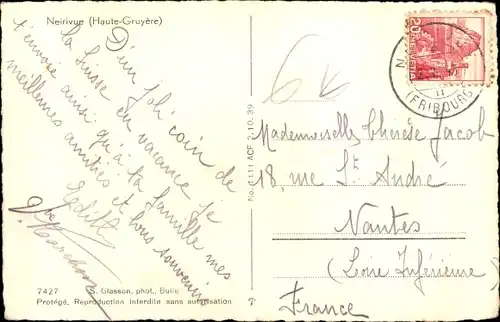 Neirivue (Haute-Gruyère)
D'un joli coin de
la Suisse en vacance je
t'envoie ainsi qu'à ta famille mes
meilleures amitiés et bons souvenirs
Edith
Marchand
7427 S. Glasson, phot., Bulle
Protégé, Reproduction interdite sans autorisation
No. 1111 ACF 2.10.39
6
HELVETIA
20
(FRIBOURG)
Mademoiselle Thérèse Jacob
18, rue St. André
Nantes
(Loire Inférieure)
France